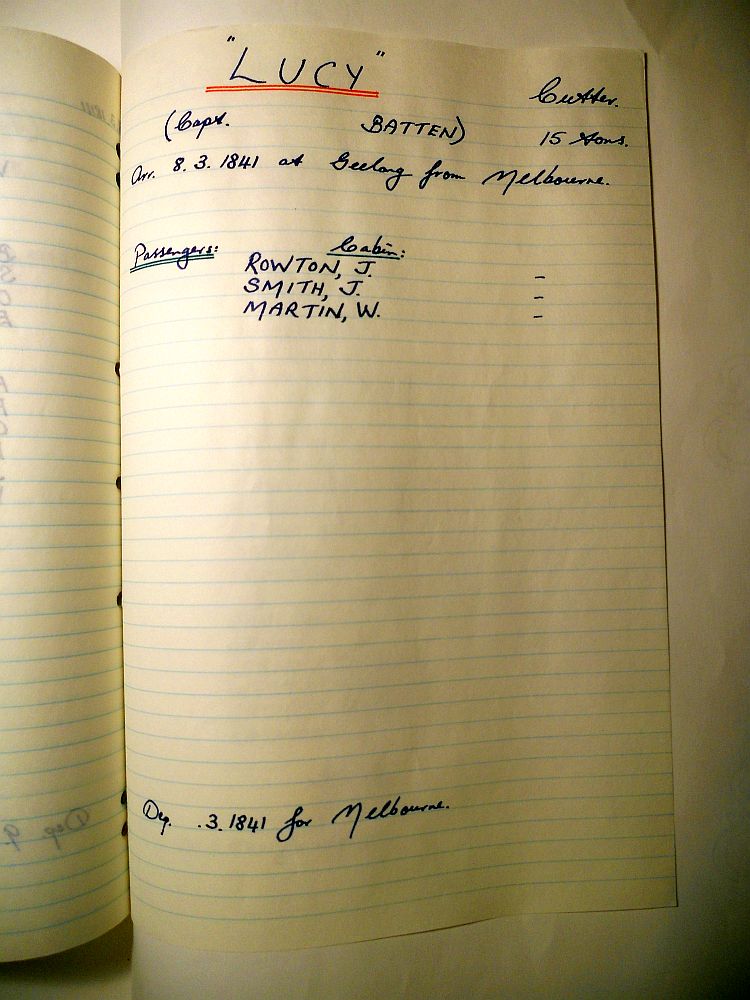 "LUCY"
Cutter.
(Capt. BATTEN) 15 tons.
Arr. 8.3.1841 at Geelong from Melbourne.
Passengers: Cabin:
ROWTON, J. -
SMITH, J. -
MARTIN, W. -
Dep. .3.1841 for Melbourne.